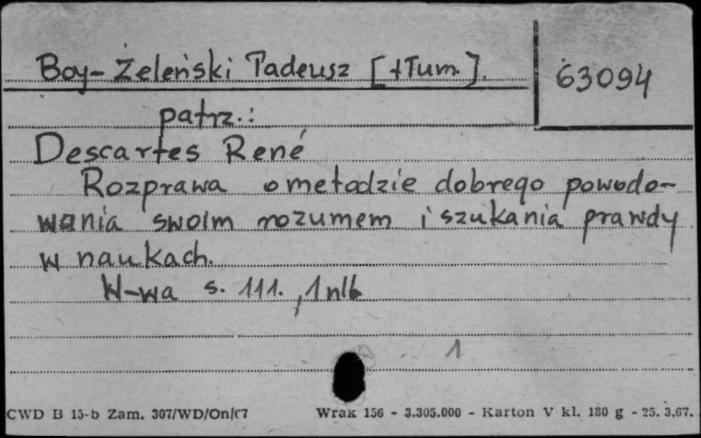 Boy-Żeleński Tadeusz [tłum.].
63094
patrz.:
Descartes René
Rozprawa o metodzie dobrego powodo-
wania swoim rozumem i szukania prawdy
w naukach.
W-wa s. 111., 1 nlb
1
CWD B 15-b Zam. 307/WD/On/67
Wrak 156 - 3.305.000 - Karton V kl. 180 g - 25. 3.67.